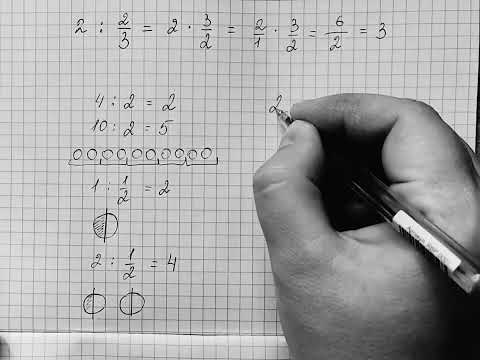 2 : 2/3 = 2 · 3/2 = 2/1 · 3/2 = 6/2 = 3
4 : 2 = 2
2
10 : 2 = 5
1 : 1/2 = 2
2 : 1/2 = 4